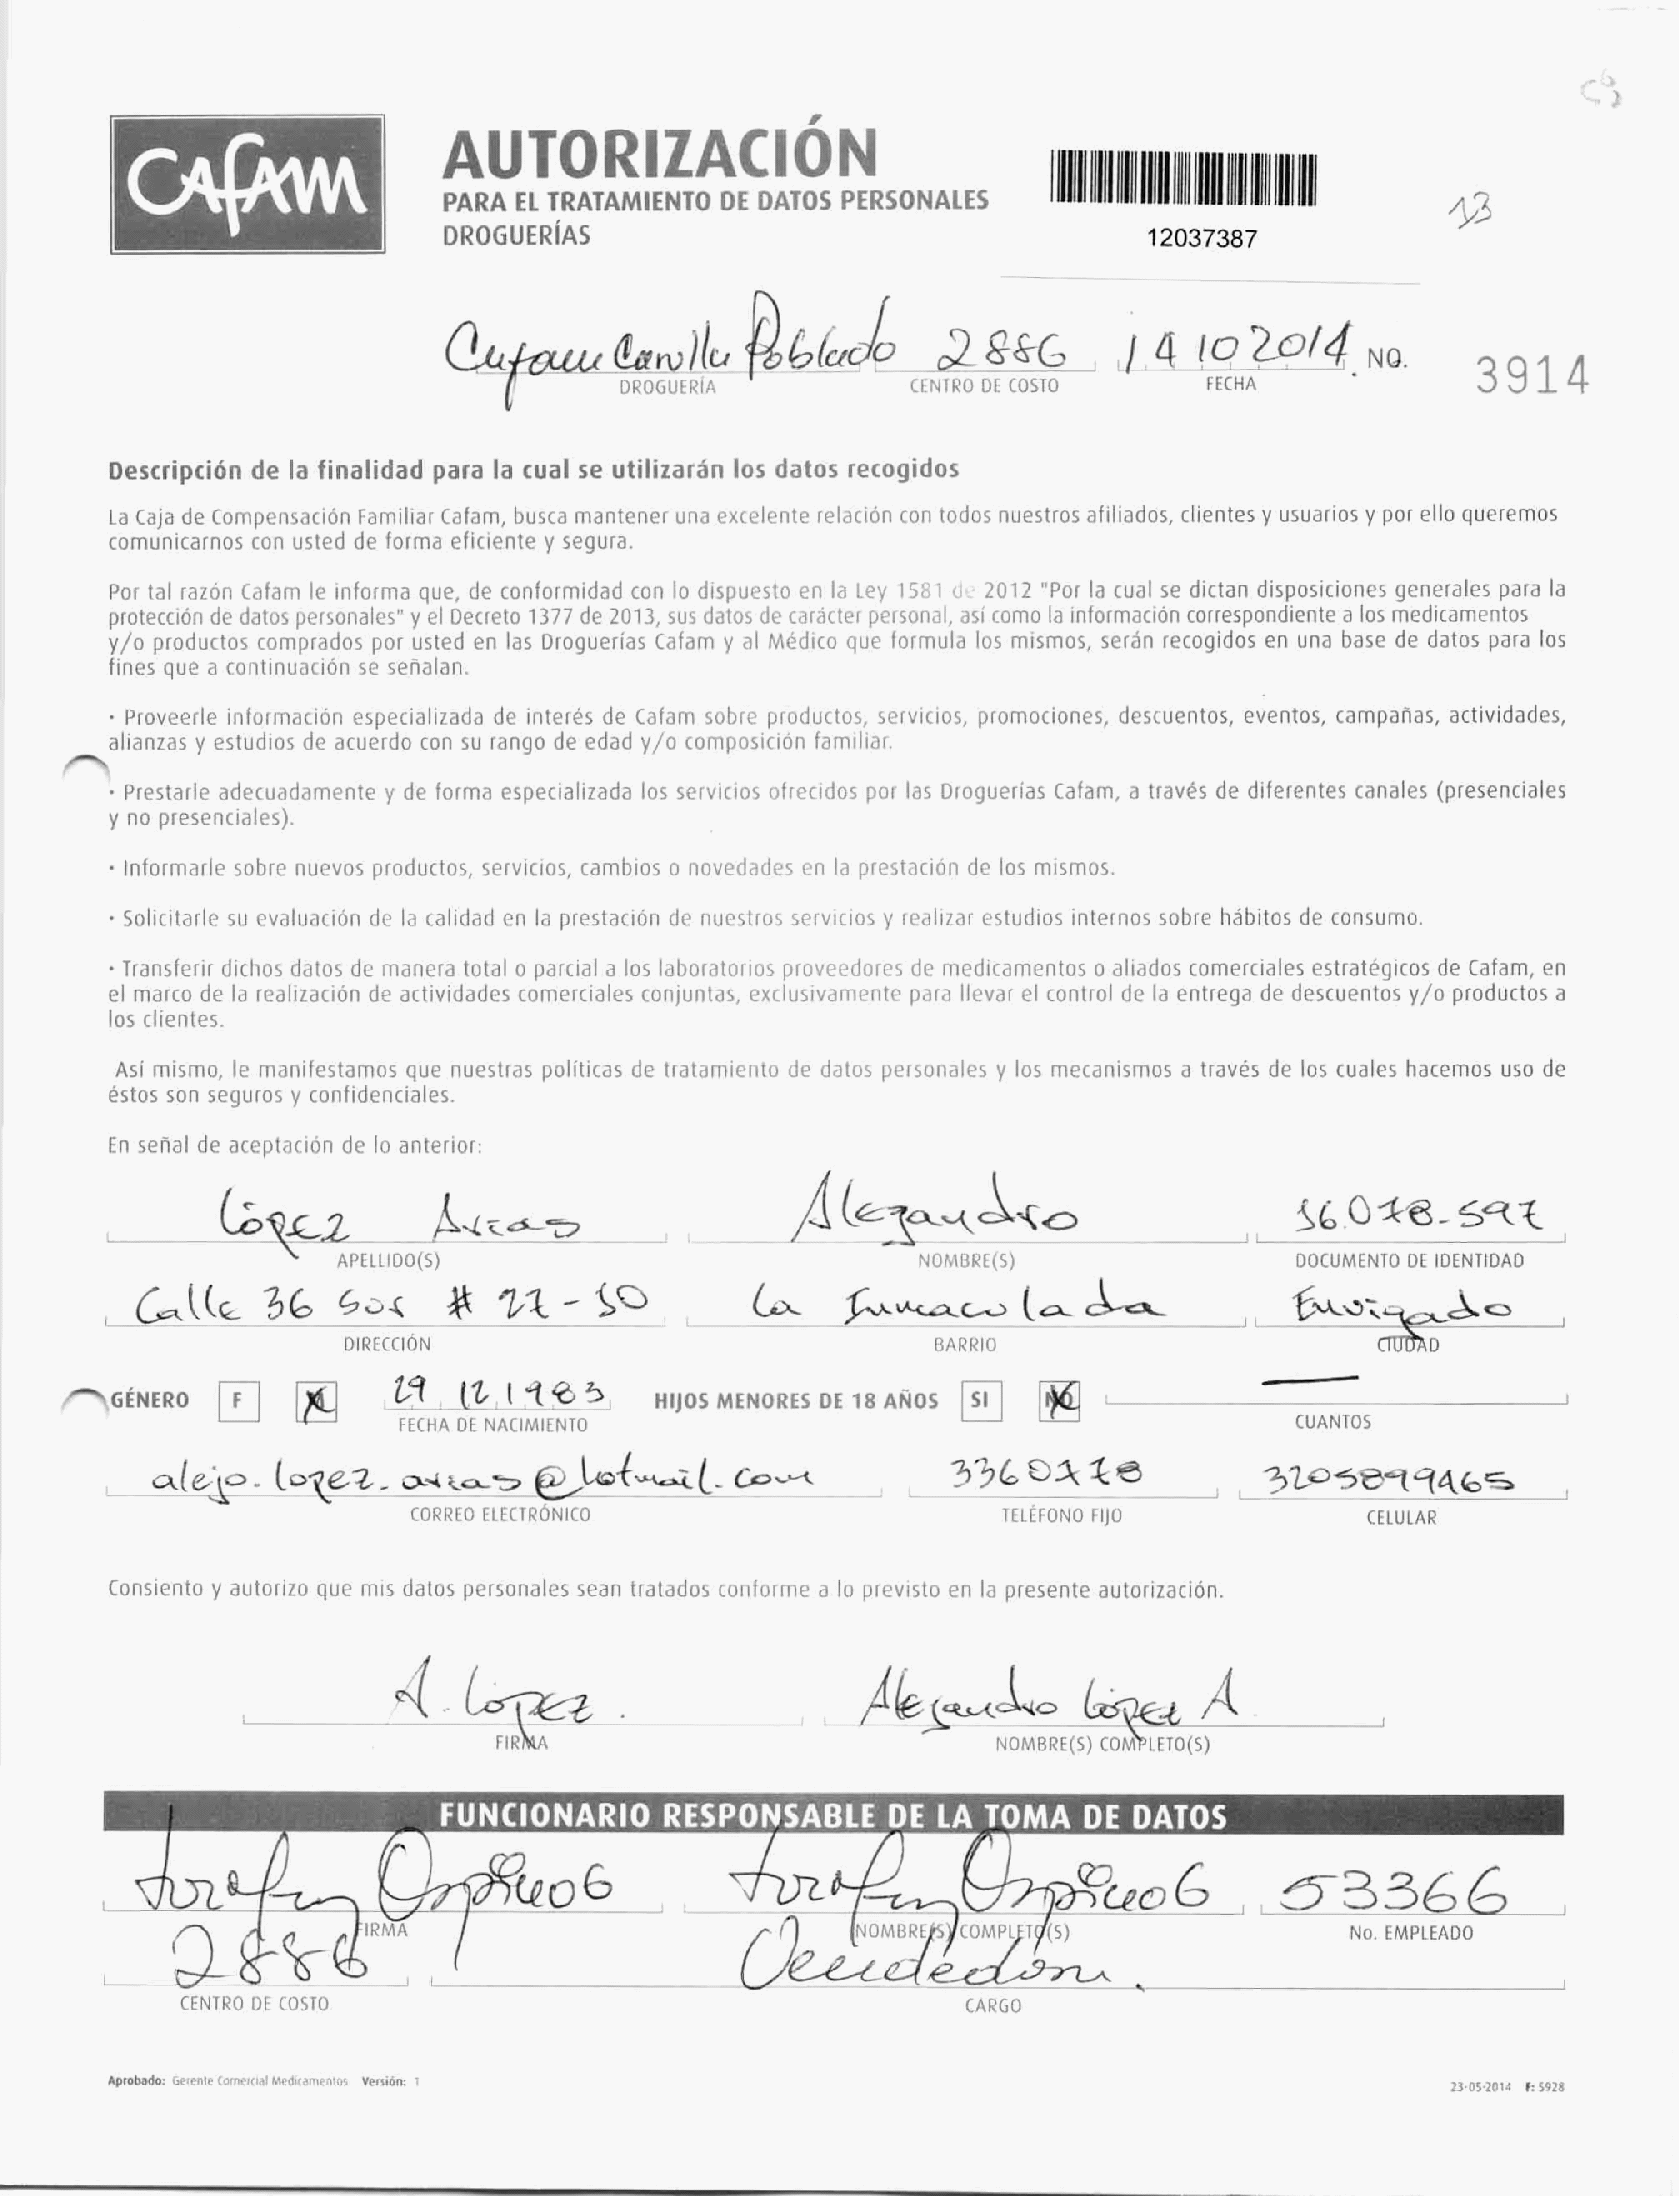 Cafam
AUTORIZACIÓN
PARA EL TRATAMIENTO DE DATOS PERSONALES
DROGUERÍAS
12037387
13
Poblado 2886 14 10 2014 NO. 3914
DROGUERÍA CENTRO DE COSTO FECHA
Descripción de la finalidad para la cual se utilizarán los datos recogidos
La Caja de Compensación Familiar Cafam, busca mantener una excelente relación con todos nuestros afiliados, clientes y usuarios y por ello queremos
comunicarnos con usted de forma eficiente y segura.
Por tal razón Cafam le informa que, de conformidad con lo dispuesto en la Ley 1581 de 2012 "Por la cual se dictan disposiciones generales para la
protección de datos personales" y el Decreto 1377 de 2013, sus datos de carácter personal, así como la información correspondiente a los medicamentos
y/o productos comprados por usted en las Droguerías Cafam y al Médico que formula los mismos, serán recogidos en una base de datos para los
fines que a continuación se señalan.
· Proveerle información especializada de interés de Cafam sobre productos, servicios, promociones, descuentos, eventos, campañas, actividades,
alianzas y estudios de acuerdo con su rango de edad y/o composición familiar.
· Prestarle adecuadamente y de forma especializada los servicios ofrecidos por las Droguerías Cafam, a través de diferentes canales (presenciales
y no presenciales).
· Informarle sobre nuevos productos, servicios, cambios o novedades en la prestación de los mismos.
· Solicitarle su evaluación de la calidad en la prestación de nuestros servicios y realizar estudios internos sobre hábitos de consumo.
· Transferir dichos datos de manera total o parcial a los laboratorios proveedores de medicamentos o aliados comerciales estratégicos de Cafam, en
el marco de la realización de actividades comerciales conjuntas, exclusivamente para llevar el control de la entrega de descuentos y/o productos a
los clientes.
Así mismo, le manifestamos que nuestras políticas de tratamiento de datos personales y los mecanismos a través de los cuales hacemos uso de
éstos son seguros y confidenciales.
En señal de aceptación de lo anterior:
López Arias Alejandro 16.078.597
APELLIDO(S) NOMBRE(S) DOCUMENTO DE IDENTIDAD
Calle 36 Sur # 27-50 La Inmaculada Envigado
DIRECCIÓN BARRIO CIUDAD
GÉNERO F X 29 12 1983 HIJOS MENORES DE 18 AÑOS SI NO —
FECHA DE NACIMIENTO CUANTOS
alejo.lopez.arias@hotmail.com 3360178 3205899465
CORREO ELECTRÓNICO TELÉFONO FIJO CELULAR
Consiento y autorizo que mis datos personales sean tratados conforme a lo previsto en la presente autorización.
A. López. Alejandro López A
FIRMA NOMBRE(S) COMPLETO(S)
FUNCIONARIO RESPONSABLE DE LA TOMA DE DATOS
53366
FIRMA NOMBRE(S) COMPLETO(S) No. EMPLEADO
2886 Vendedora.
CENTRO DE COSTO CARGO
Aprobado: Gerente Comercial Medicamentos Versión: 1
23-05-2014 F: 5928